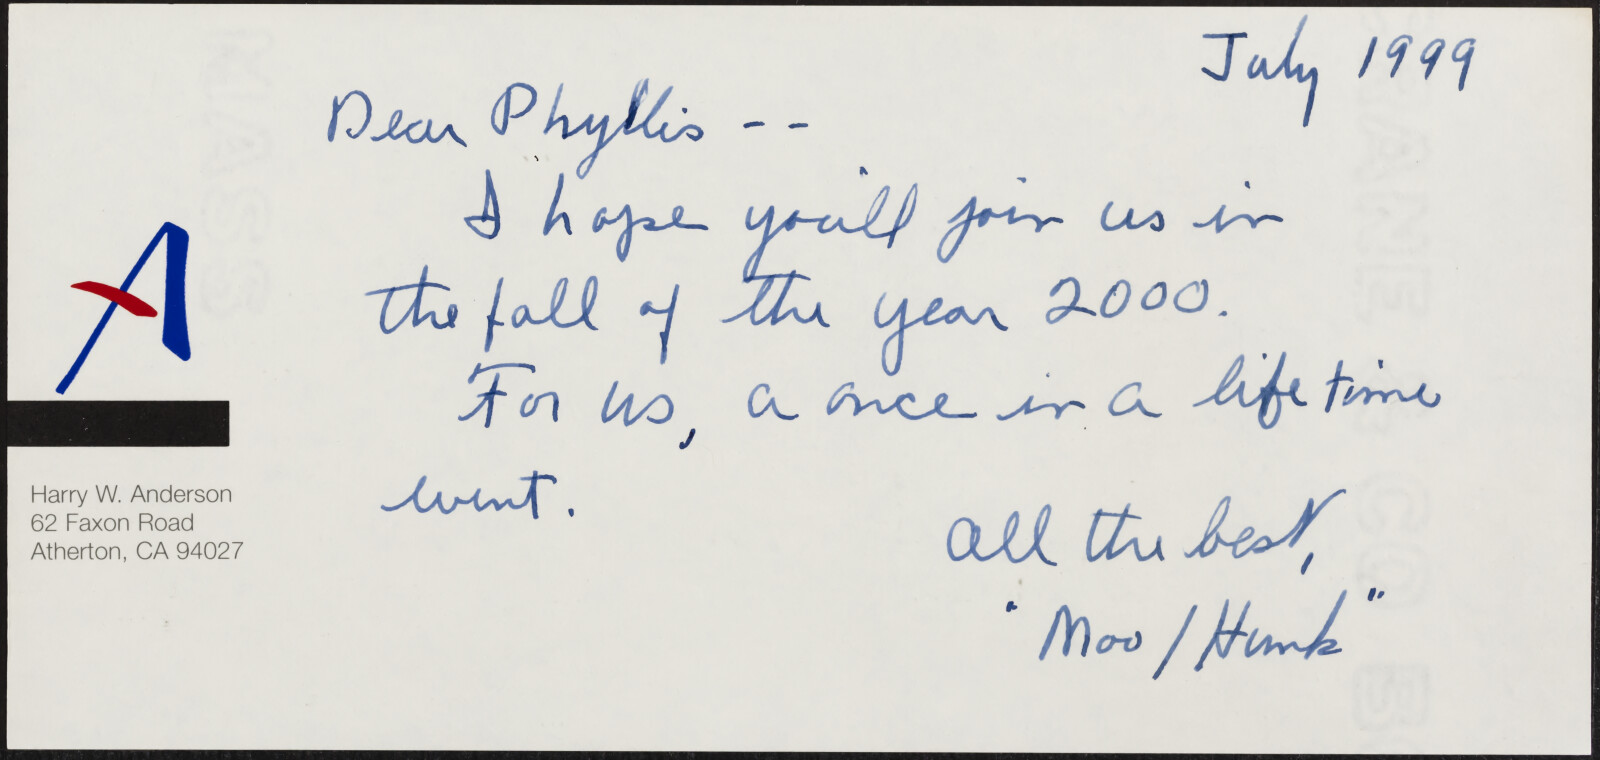 July 1999
Dear Phyllis --
I hope you'll join us in
the fall of the year 2000.
For us, a once in a life time
event.
All the best,
"Moo/Hunk"
A
Harry W. Anderson
62 Faxon Road
Atherton, CA 94027